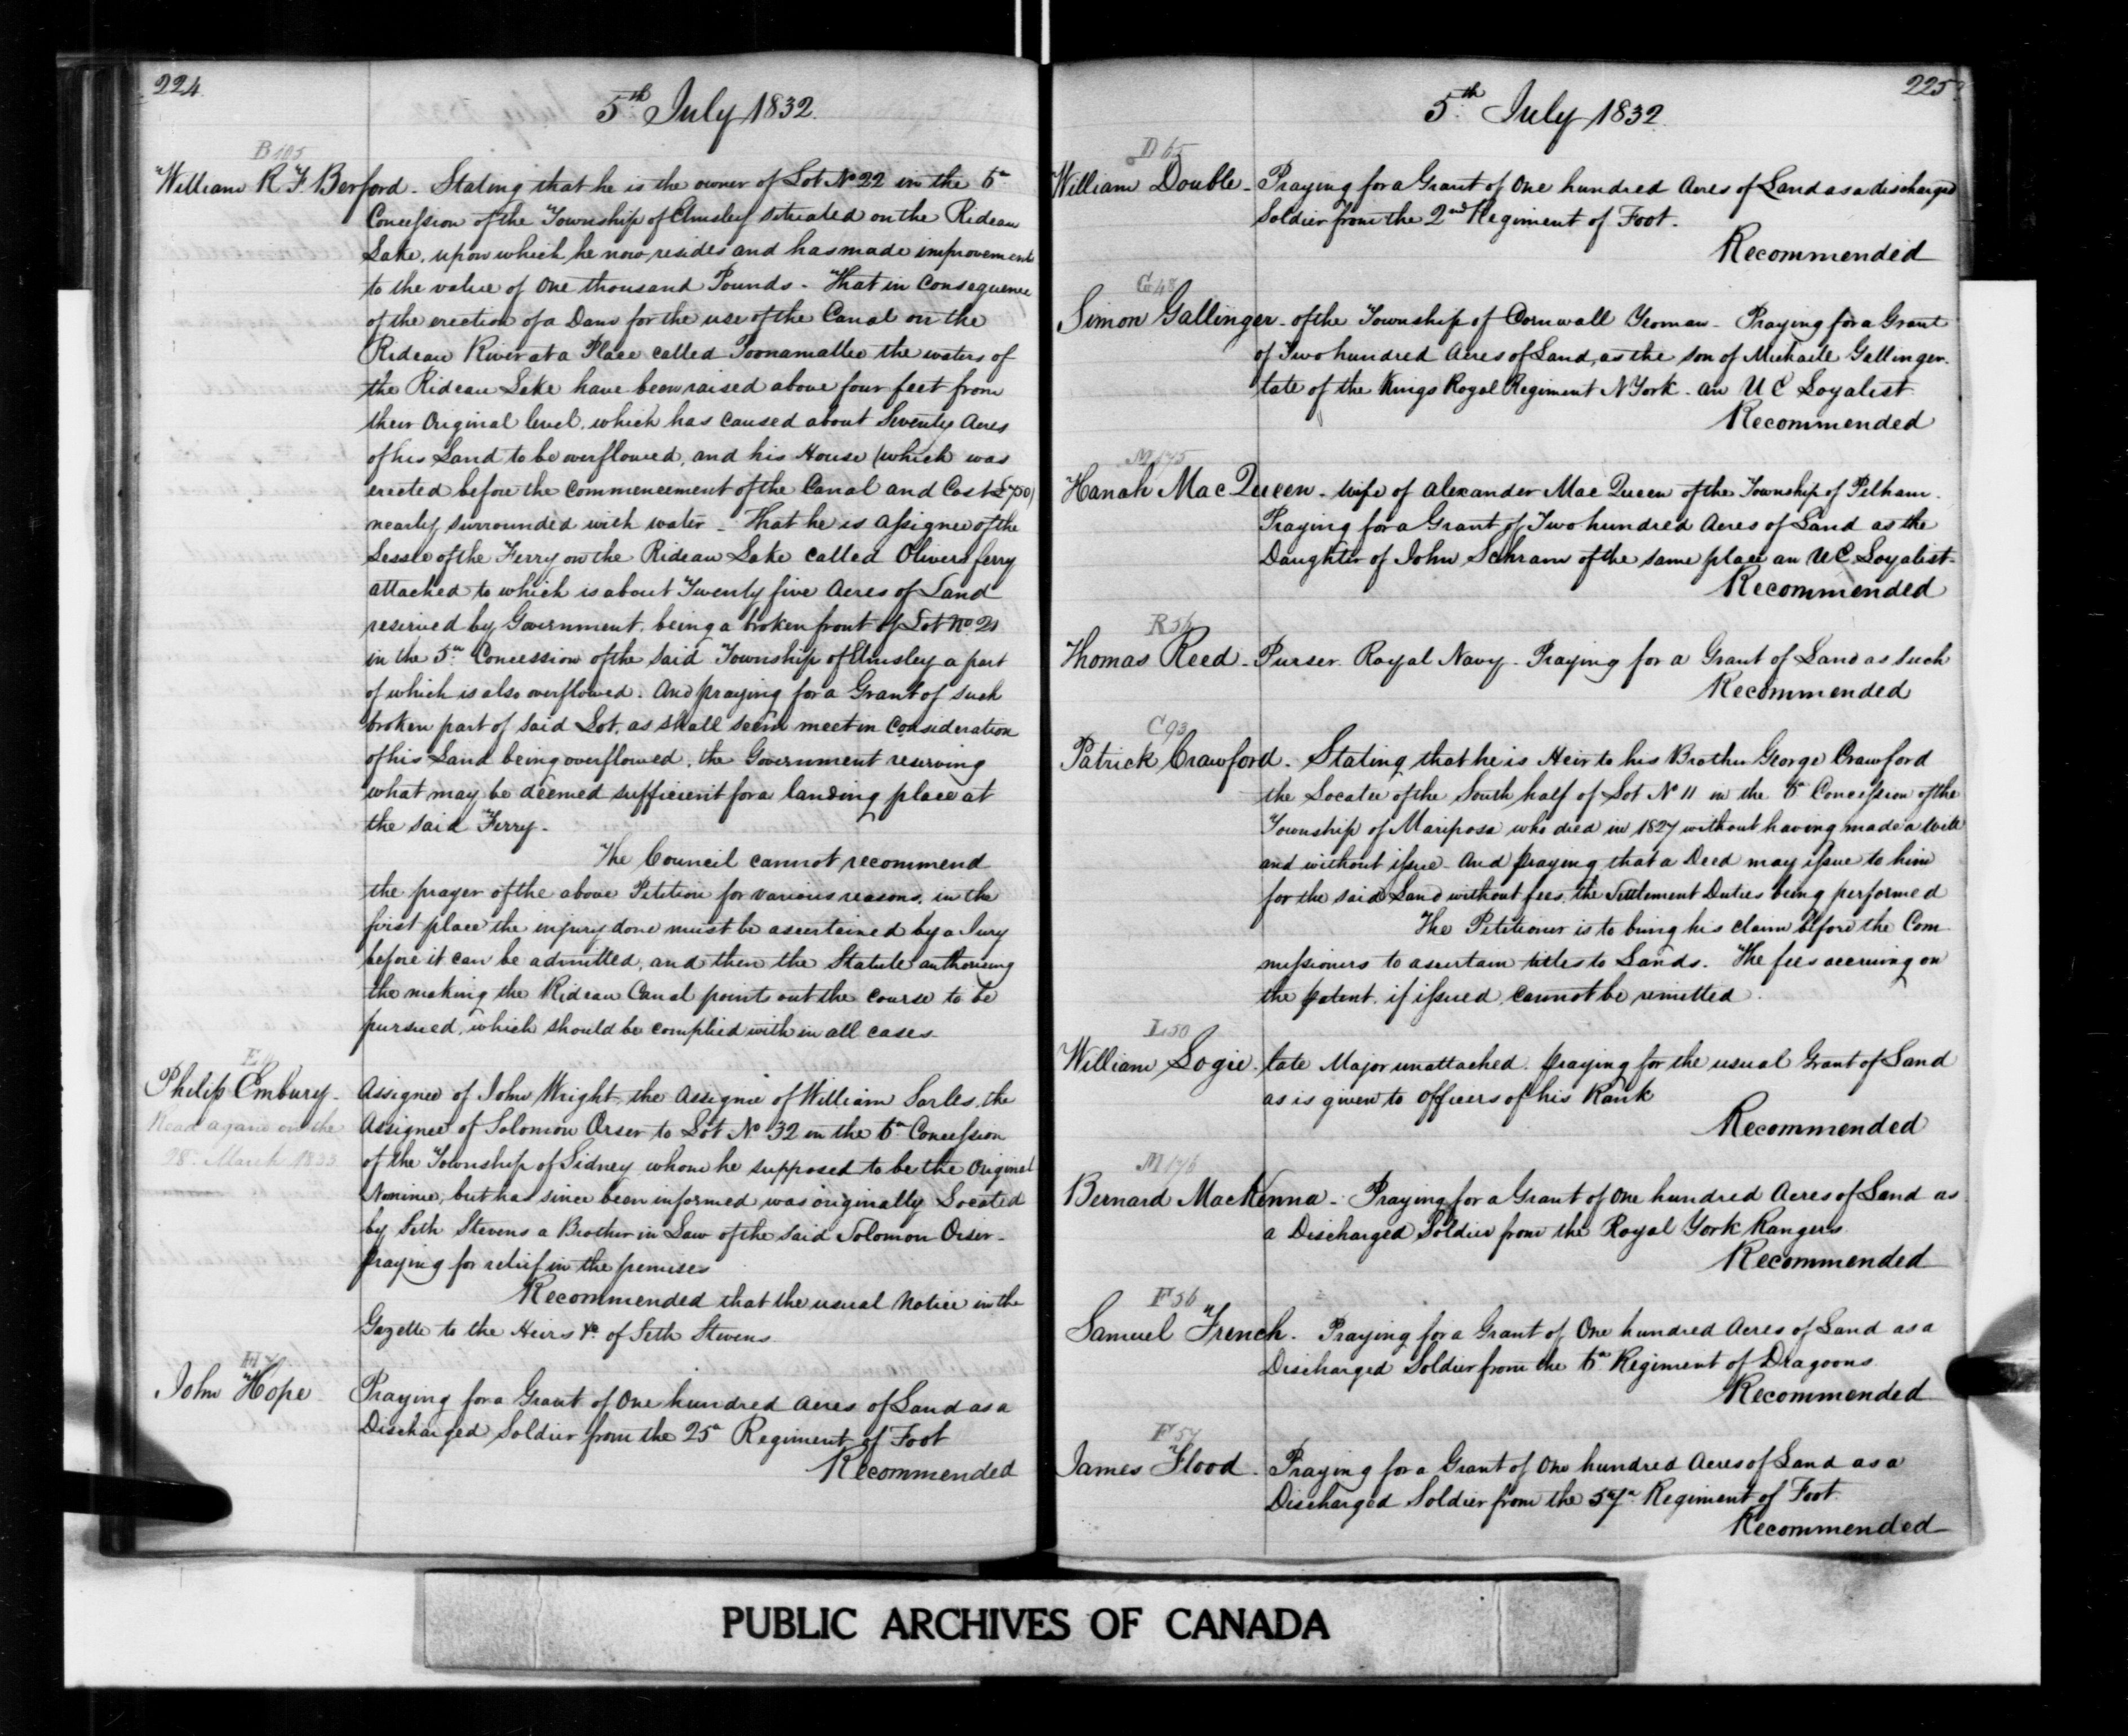 224
5th July 1832.
B 105
William R F Berford - Stating that he is the owner of Lot No 22 in the 6th
Concession of the Township of Elmsley situated on the Rideau
Lake, upon which he now resides and has made improvements
to the value of One thousand Pounds - That in consequence
of the erection of a Dam for the use of the Canal on the
Rideau River at a Place called Poonamallee the waters of
the Rideau Lake have been raised above four feet from
their Original level, which has caused about Seventy Acres
of his Land to be overflowed, and his House (which was
erected before the Commencement of the Canal and Cost £750)
nearly surrounded with water - That he is Assignee of the
Lessee of the Ferry on the Rideau Lake called Olivers ferry
attached to which is about Twenty five Acres of Land
reserved by Government, being a broken front of Lot No 21
in the 5th Concession of the said Township of Elmsley a part
of which is also overflowed. And praying for a Grant of such
broken part of said Lot, as shall seem meet in Consideration
of his Land being overflowed, the Government reserving
what may be deemed sufficient for a landing place at
the said Ferry -
The Council cannot recommend
the prayer of the above Petition for various reasons, in the
first place the injury done must be ascertained by a Jury
before it can be admitted, and then the Statute authorising
the making the Rideau Canal points out the course to be
pursued, which should be complied with in all cases -
Philip Embury -
Read again on the
28th March 1833
Assignee of John Wright, the Assignee of William Sarles, the
Assignee of Solomon Orser to Lot No 32 in the 6th Concession
of the Township of Sidney whom he supposed to be the Original
Nominee, but has since been informed was originally Located
by Seth Stevens a Brother in Law of the said Solomon Orser -
praying for relief in the premises
Recommended that the usual Notice in the
Gazette to the Heirs &c. of Seth Stevens
John Hope
Praying for a Grant of One hundred Acres of Land as a
Discharged Soldier from the 25th Regiment of Foot
Recommended
225
5th July 1832
D 65
William Double - Praying for a Grant of One hundred Acres of Land as a discharged
Soldier from the 2nd Regiment of Foot -
Recommended
G 48
Simon Gallinger - of the Township of Cornwall Yeoman - Praying for a Grant
of Two hundred Acres of Land, as the son of Michaile Gallinger
late of the Kings Royal Regiment N York - an U C Loyalist
Recommended
M 175
Hanah Mac Queen - Wife of Alexander Mac Queen of the Township of Pelham -
Praying for a Grant of Two hundred Acres of Land as the
Daughter of John Schram of the same place an U C Loyalist -
Recommended
R 56
Thomas Reed - Purser Royal Navy - Praying for a Grant of Land as such
Recommended
C 93
Patrick Crawford - Stating that he is Heir to his Brother George Crawford
the Locatee of the South half of Lot No 11 in the 6th Concession of the
Township of Mariposa who died in 1827 without having made a Will
and without issue - And praying that a Deed may issue to him
for the said Land without fees, the Settlement Duties being performed
The Petitioner is to bring his claim before the Com
missioners to ascertain titles to Lands. The fees accruing on
the patent, if issued, cannot be remitted.
L 50
William Logie - late Major unattached - praying for the usual Grant of Land
as is given to Officers of his Rank
Recommended
M 176
Bernard MacKenna - Praying for a Grant of One hundred Acres of Land as
a Discharged Soldier from the Royal York Rangers
Recommended
F 56
Samuel French - Praying for a Grant of One hundred Acres of Land as a
Discharged Soldier from the 6th Regiment of Dragoons
Recommended
F 57
James Flood - Praying for a Grant of One hundred Acres of Land as a
Discharged Soldier from the 57th Regiment of Foot
Recommended
PUBLIC ARCHIVES OF CANADA